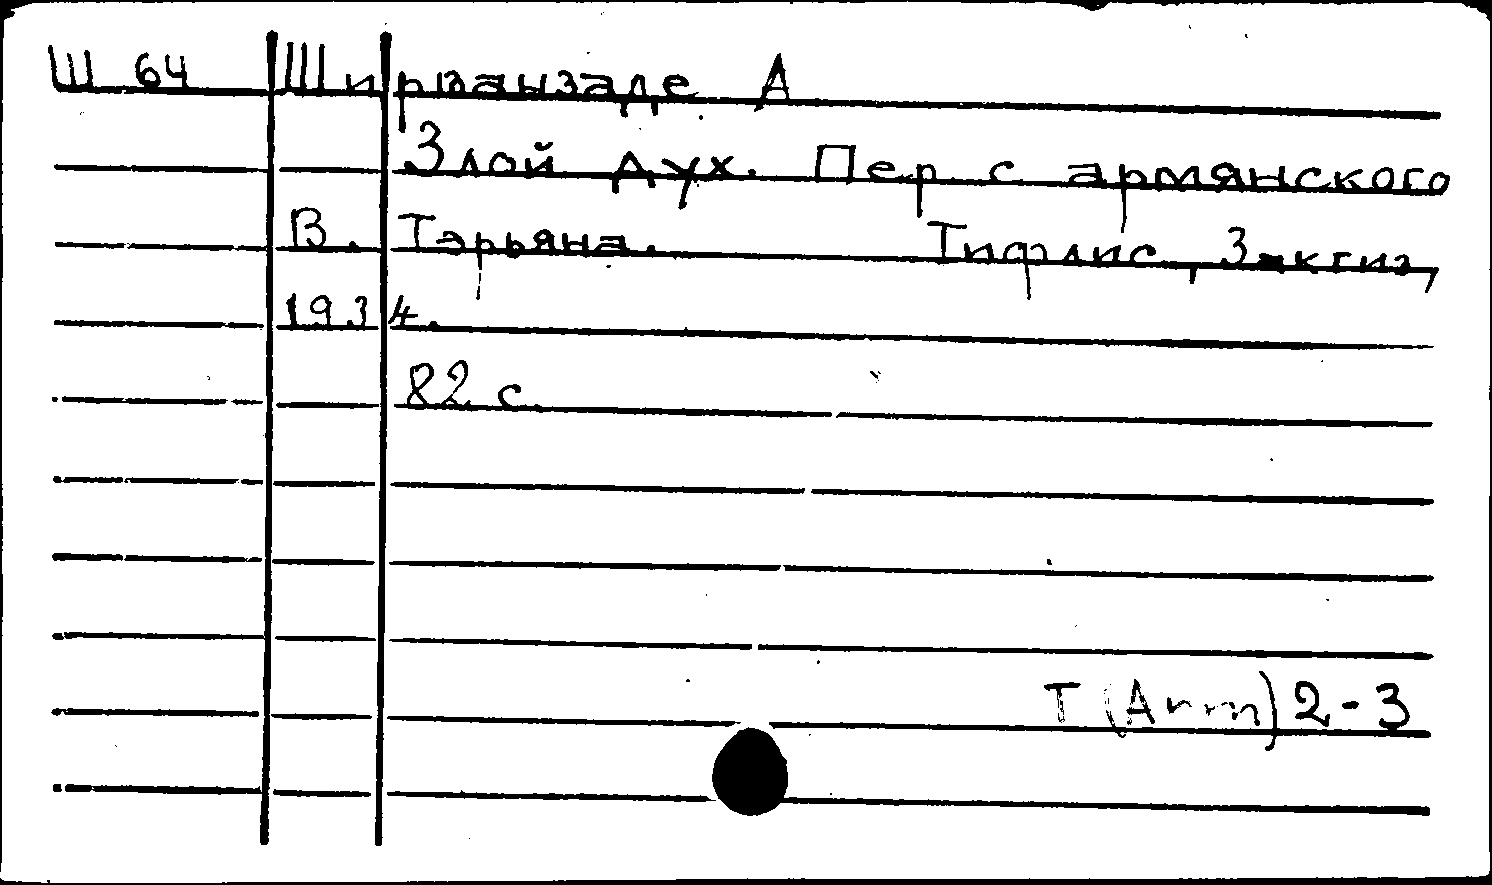 Ш 64 Ширванзаде А
Злой дух. Пер. с армянского
В. Тэрьяна. Тифлис, Закгиз,
1934.
82 с.
Т (Arm) 2-3